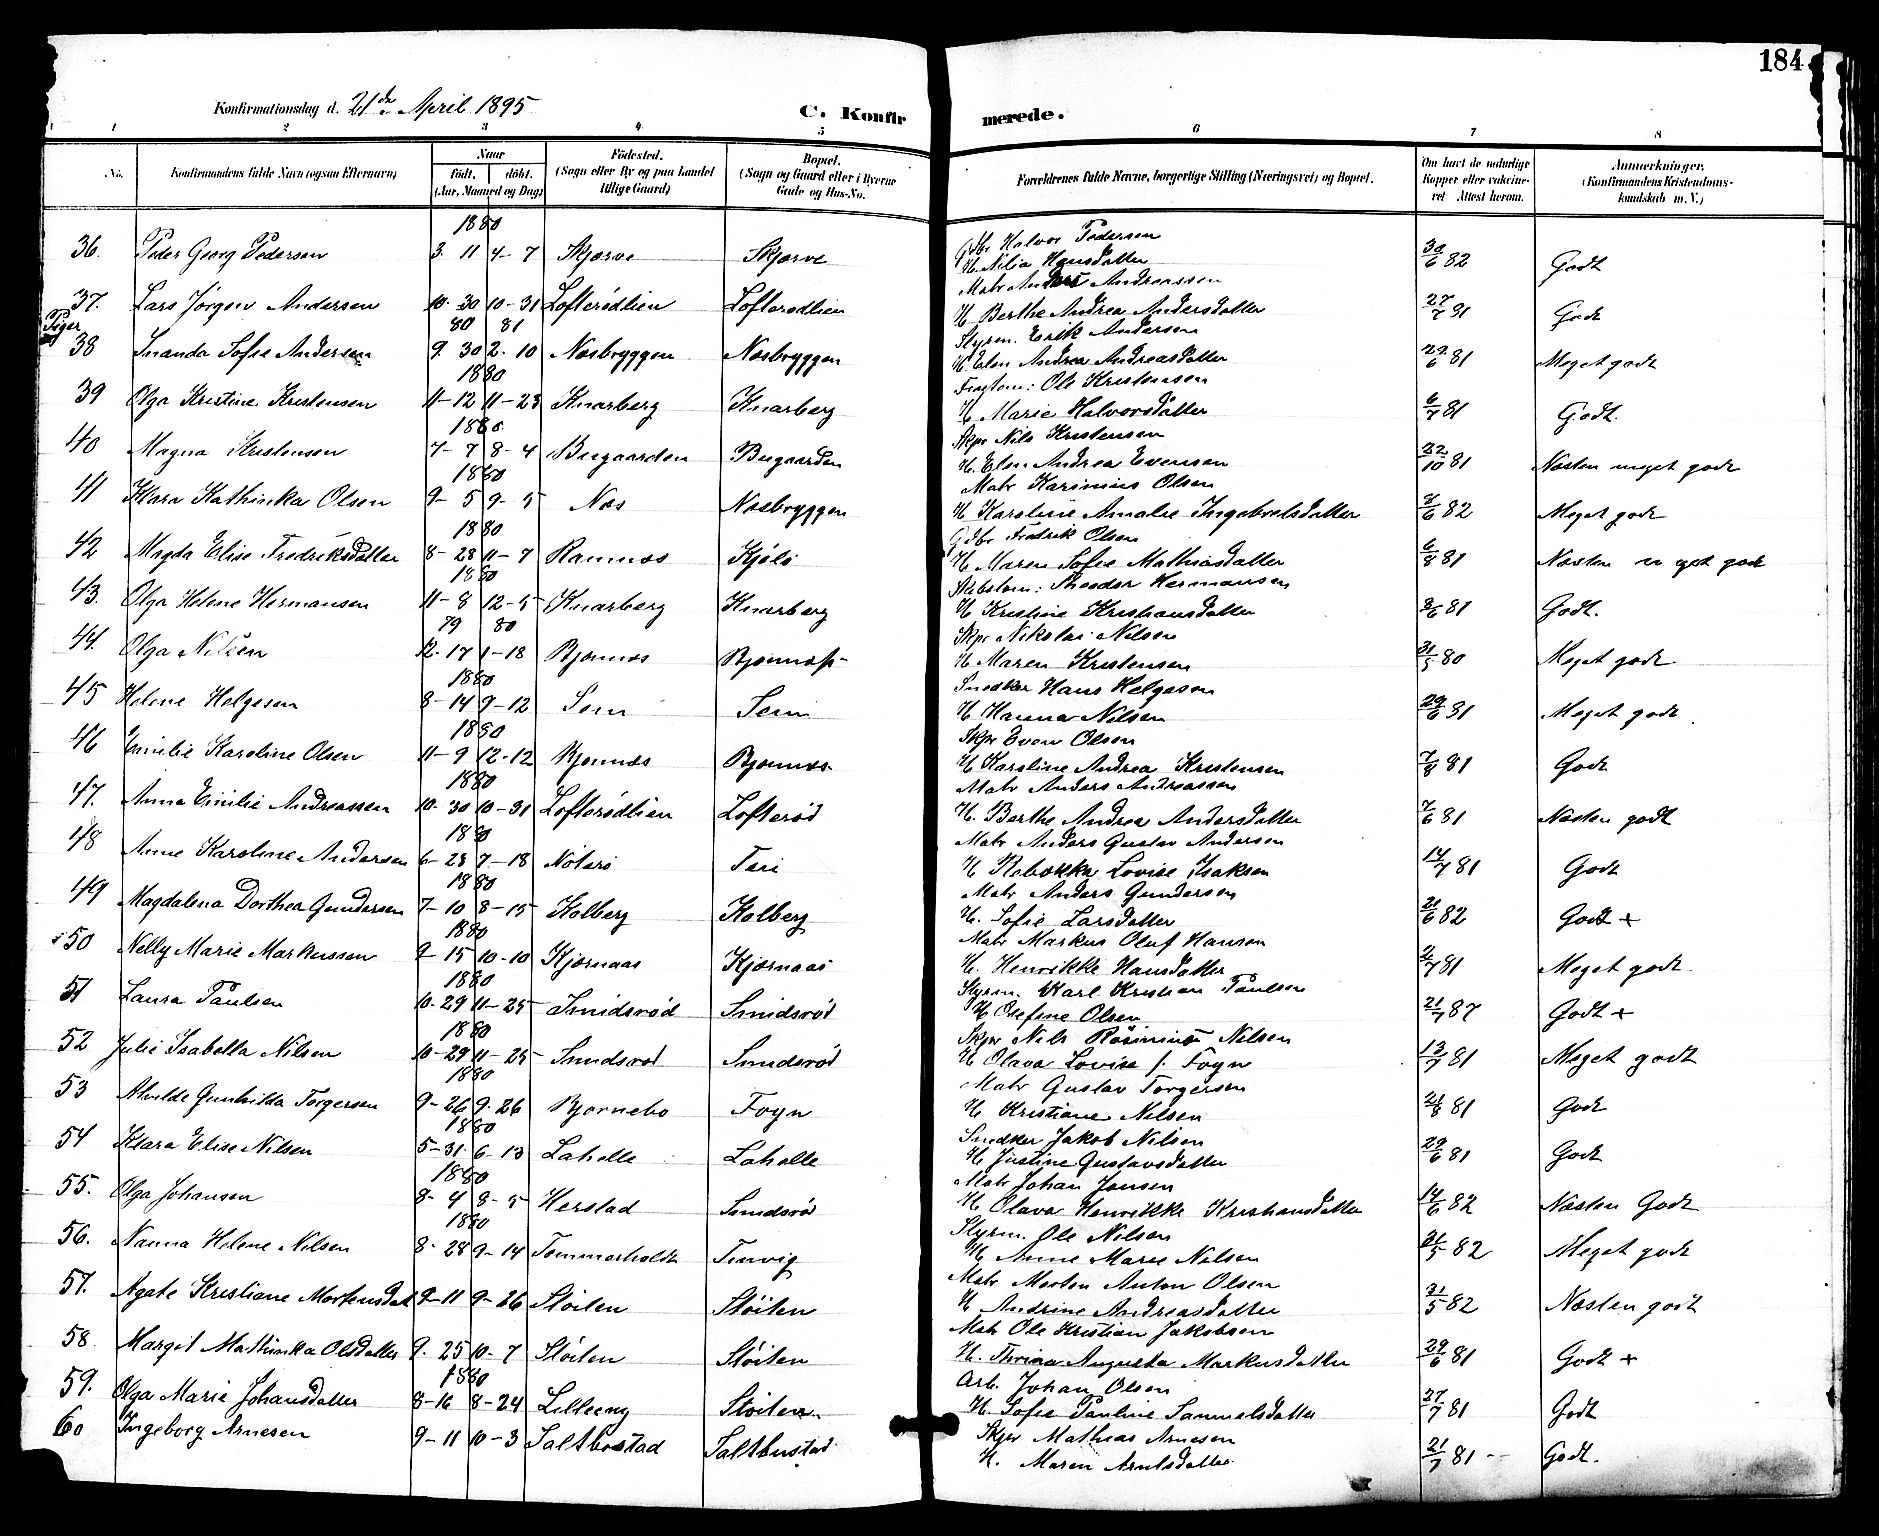 184
Konfirmationsdag d. 21de April 1895
C. Konfirmerede.
1 2 3 4 5 6 7 8
No.
Konfirmandens fulde Navn (ogsaa Efternavn)
Naar
født. døbt.
(Aar, Maaned og Dag)
Fødested.
(Sogn eller By og paa Landet
tillige Gaard)
Bopæl.
(Sogn og Gaard eller i Byerne
Gade og Hus-No.
Forældrenes fulde Navne, borgerlige Stilling (Næringsvei) og Bopæl.
Om havt de naturlige
Kopper eller vakcine-
ret Attest herom.
Anmerkninger.
(Konfirmandens Kristendoms-
kundskab m. V.)
1880
Gdbr Halvor Pedersen
36. Peder Georg Pedersen 3. 11 4-7 Skjærve Skjærve H. Nilia Hansdatter 30/6 82 Godt
Matr Anders Andreassen
37. Lars Jørgen Andersen 10-30 10-31 Lofterødlien Lofterødlien H Berthe Andrea Andersdatter 27/7 81 Godt
Piger 80 81 Styrm. Erik Andersen
38 Inanda Sofie Andersen 9. 30 2-10 Næsbryggen Næsbryggen H. Elen Andrea Andreasdatter 29/6 81 Meget godt
1880 Fragtem: Ole Kristensen
39 Olga Kristine Kristensen 11-12 11-23 Knarberg Knarberg H Marie Halvorsdatter 6/7 81 Godt.
1880 Skpr Nils Kristensen
40 Magna Kristensen 7-7 8-4 Bugaarden Bugaarden H. Elen Andrea Evensen 22/10 81 Næsten meget godt
1880 Matr Karinius Olsen
41 Klara Kathinka Olsen 9-5 9-5 Næs Næsbryggen H Karoline Amalie Ingebretsdatter 8/6 82 Meget godt
1880 Gdbr Fredrik Olsen
42 Magda Elise Fredriksdatter 8-28 11-7 Ramnæs Kjølø H Maren Sofie Mathiasdatter 6/8 81 Næsten meget godt
1880 Theodor Hermansen
43. Olga Helene Hermansen 11-8 12-5 Knarberg Knarberg H Kristine Kristiansdatter 81 Godt.
79 80 Skpr Nikolai Nilsen
44. Olga Nilsen 12-17 1-18 Bjønnæs H Maren Kristensen 21/5 80 Meget godt
1880 Snedker Hans Helgesen
45 Helene Helgesen 8-14 9-12 Sem Sem H Hanna Nilsen 29/6 81 Meget godt
1880 Skpr Even Olsen
46 Emilie Karoline Olsen 11-9 12-12 Bjønnæs Bjønnæs H Karoline Andrea Kristensen 7/8 81 Godt
1880 Matr Anders Andreassen
47. Anna Emilie Andreassen 10-30 10-31 Lofterødlien Lofterød H. Berthe Andrea Andersdatter 7/6 81 Næsten godt
1880 Matr Anders Gustav Andersen
48 Anne Karoline Andersen 6-28 7-18 Nøterø H Rebekka Lovise Isaksen 14/7 81 Godt
1880 Matr Anders Gundersen
49 Magdalena Dorthea Gundersen 7-10 8-15 Kolberg Kolberg H. Sofie Larsdatter 21/6 82 Godt +
1880 Matr Markus Oluf Hansen
50 Nelly Marie Markussen 9-15 10-10 Kjærnaas Kjærnaas H. Henrikke Hansdatter 2/7 81 Meget godt
1880 Styrm. Karl Kristian Paulsen
51 Laura Paulsen 10-29 11-25 Smidsrød Smidsrød H Olefine Olsen 21/7 87 Godt +
1880 Skpr Nils Nilsen
52 Julie Isabella Nilsen 10-29 11-25 Smidsrød Smidsrød H Olava Lovise f. Foyn 13/7 81 Meget godt
1880 Matr Gustav Torgersen
53 Alvilde Gunhilda Torgersen 9-26 9-26 Bjørnebo Foyn H Kristiane Nilsen 21/8 81 Godt
1880 Snedker Jakob Nilsen
54 Klara Elise Nilsen 5-31 6-13 Lahelle Lahelle H Justine Gustavsdatter 29/6 81 Godt
1880 Matr Johan Jansen
55. Olga Johansen 8-4 8-5 Herstad Smidsrød H Olava Henrikke Kristiansdatter 14/6 82 Næsten Godt
1880 Styrm. Ole Nilsen
56. Nanna Helene Nilsen 8-28 9-14 Tømmerholdt Tinvig H Anne Marie Nilsen 21/5 82 Meget godt
Matr Morten Anton Olsen
57. Agate Kristiane Mortensdat 9-11 9-26 Støiten Støiten H Andrine Andreasdatter 21/5 82 Næsten godt
Matr Ole Kristian Jakobsen
58. Margit Mathinka Olsdatter 9-25 10-7 Støiten Støiten H. Thrina Augusta Markusdatter 29/6 81 Godt +
1880 Arb. Johan Olsen
59. Olga Marie Johansdatter 8-16 8-24 Lilleeng Støiten H Sofie Pauline Samuelsdatter 27/7 81 Godt
Skpr Mathias Arnesen
60 Ingeborg Arnesen 9-11 10-3 Saltbostad Saltbustad H. Maren Arntsdatter 21/7 81 Godt.